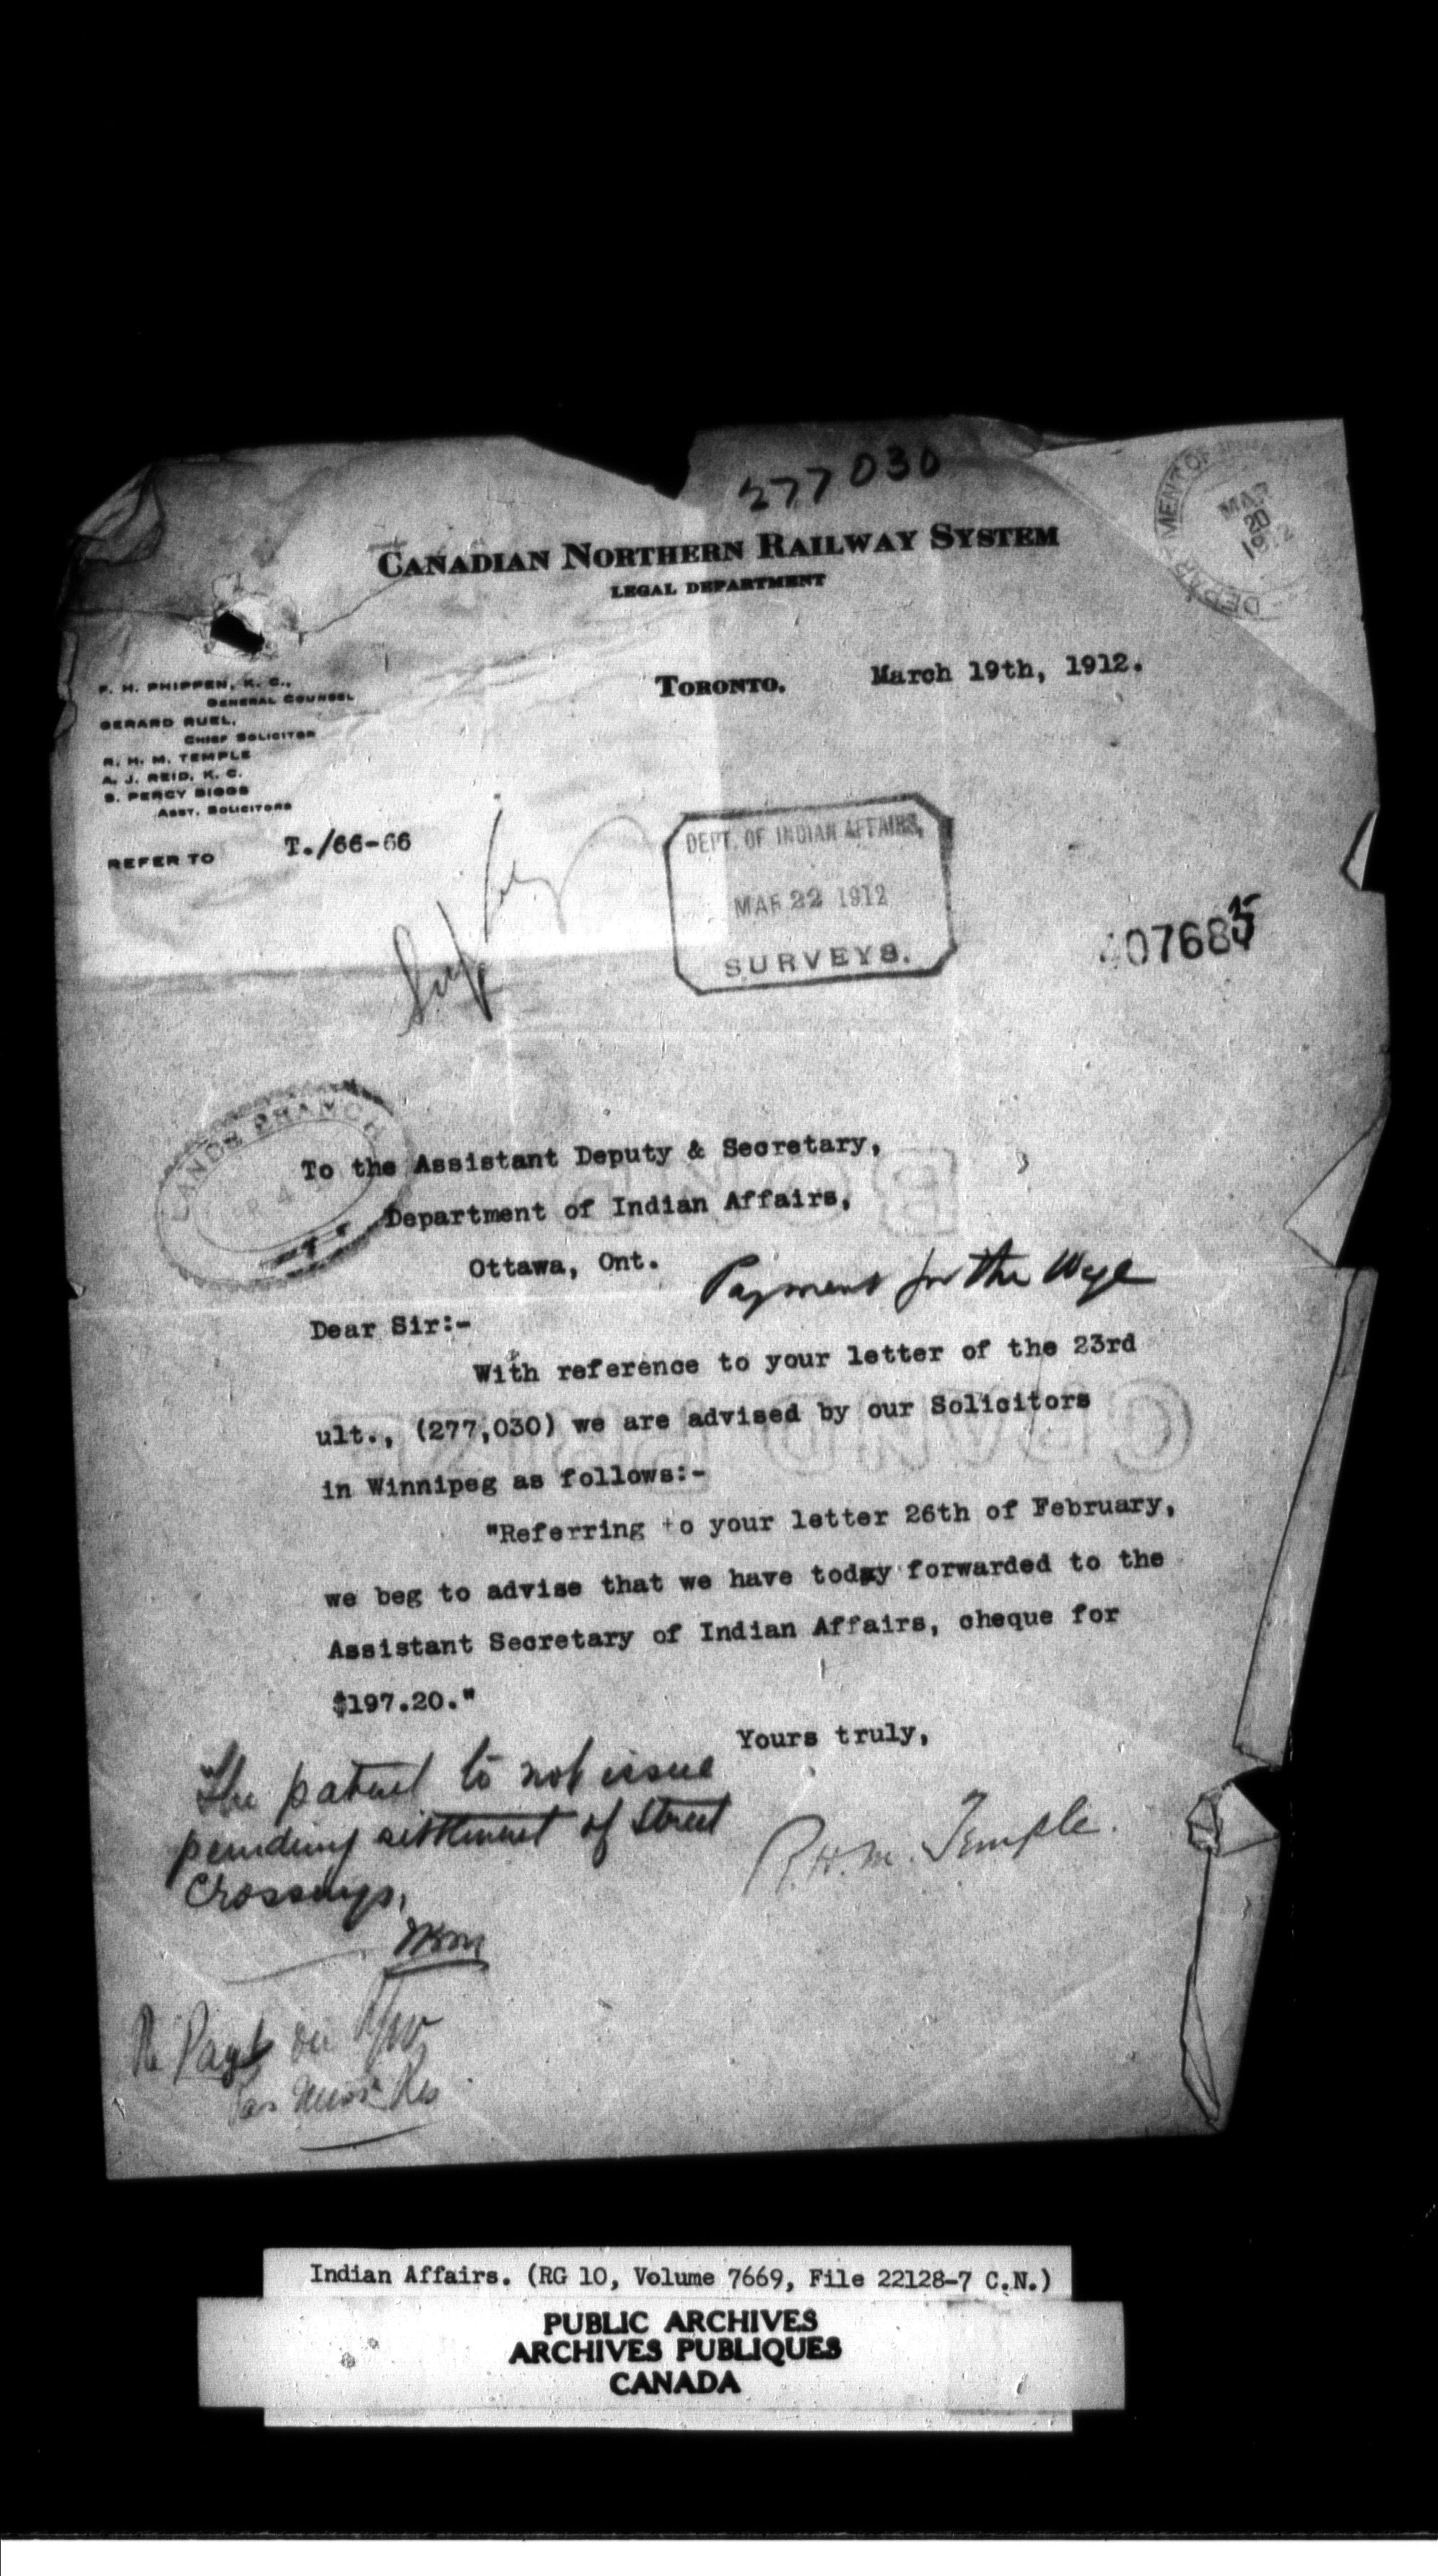 277030
DEPARTMENT OF
MAR
20
1912
CANADIAN NORTHERN RAILWAY SYSTEM
LEGAL DEPARTMENT
TORONTO, March 19th, 1912.
F. H. PHIPPEN, K. C.,
GENERAL COUNSEL
GERARD RUEL,
CHIEF SOLICITOR
R. H. M. TEMPLE
A. J. REID, K. C.
S. PERCY BIGGS
ASST. SOLICITORS
REFER TO T./66-66
DEPT. OF INDIAN AFFAIRS,
MAR 22 1912
SURVEYS.
407685
LANDS BRANCH
To the Assistant Deputy & Secretary,
Department of Indian Affairs,
Ottawa, Ont.
Payment for the Wye
Dear Sir:-
With reference to your letter of the 23rd
ult., (277,030) we are advised by our Solicitors
in Winnipeg as follows:-
"Referring to your letter 26th of February,
we beg to advise that we have today forwarded to the
Assistant Secretary of Indian Affairs, cheque for
$197.20."
Yours truly,
R.H.M. Temple.
The patent to not issue
pending settlement of Street
Crossings.
BOND
GRAND PRIZE
Indian Affairs. (RG 10, Volume 7669, File 22128-7 C.N.)
PUBLIC ARCHIVES
ARCHIVES PUBLIQUES
CANADA